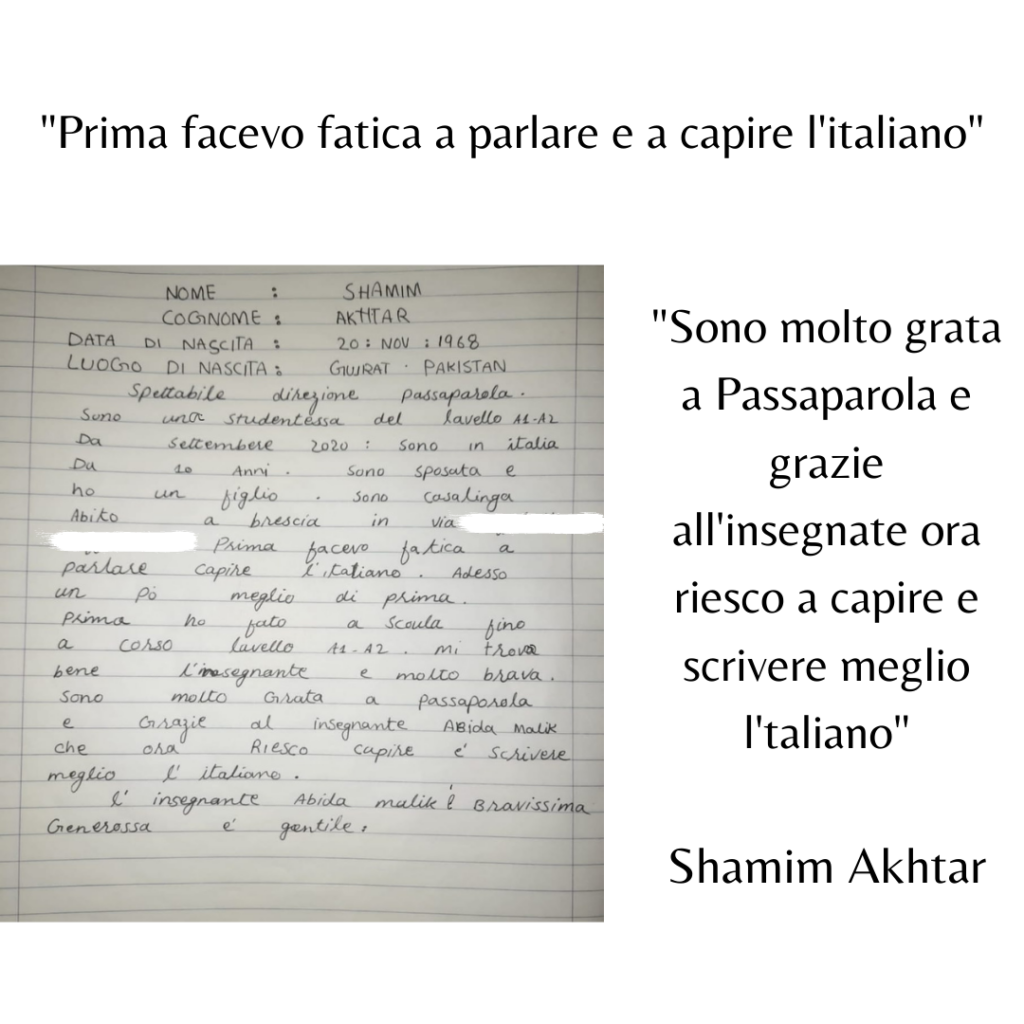 "Prima facevo fatica a parlare e a capire l'italiano"
NOME : SHAMIM
COGNOME : AKHTAR
DATA DI NASCITA : 20 : NOV : 1968
LUOGO DI NASCITA : GIWRAT . PAKISTAN
Spettabile direzione passaparola .
Suno una studentessa del lavello A1-A2
Da settembere 2020 : sono in italia
Da 10 Anni . sono sposata e
ho un figlio . sono casalinga
Abito a brescia in via
Prima facevo fatica a
parlare capire l'italiano . Adesso
un pò meglio di prima .
Prima ho fato a scoula fino
a corso lavello A1-A2 . mi trova
bene l'insegnante e molto brava .
Sono molto Grata a passaparola
e Grazie al insegnante ABida Malik
che ora Riesco capire e' scrivere
meglio l' italiano .
l' insegnante Abida malik è Bravissima
Generossa e' gentile :
"Sono molto grata
a Passaparola e
grazie
all'insegnate ora
riesco a capire e
scrivere meglio
l'taliano"
Shamim Akhtar